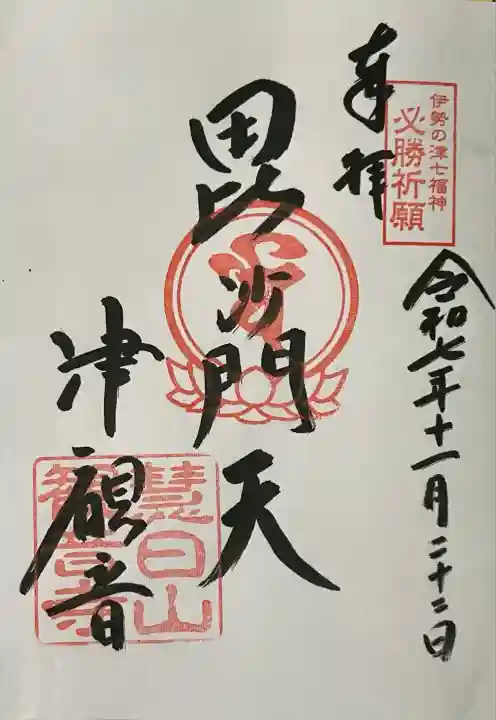 奉拝
伊勢の津七福神
必勝祈願
令和七年十一月二十二日
毘沙門天
津観音
慧日山
観音寺